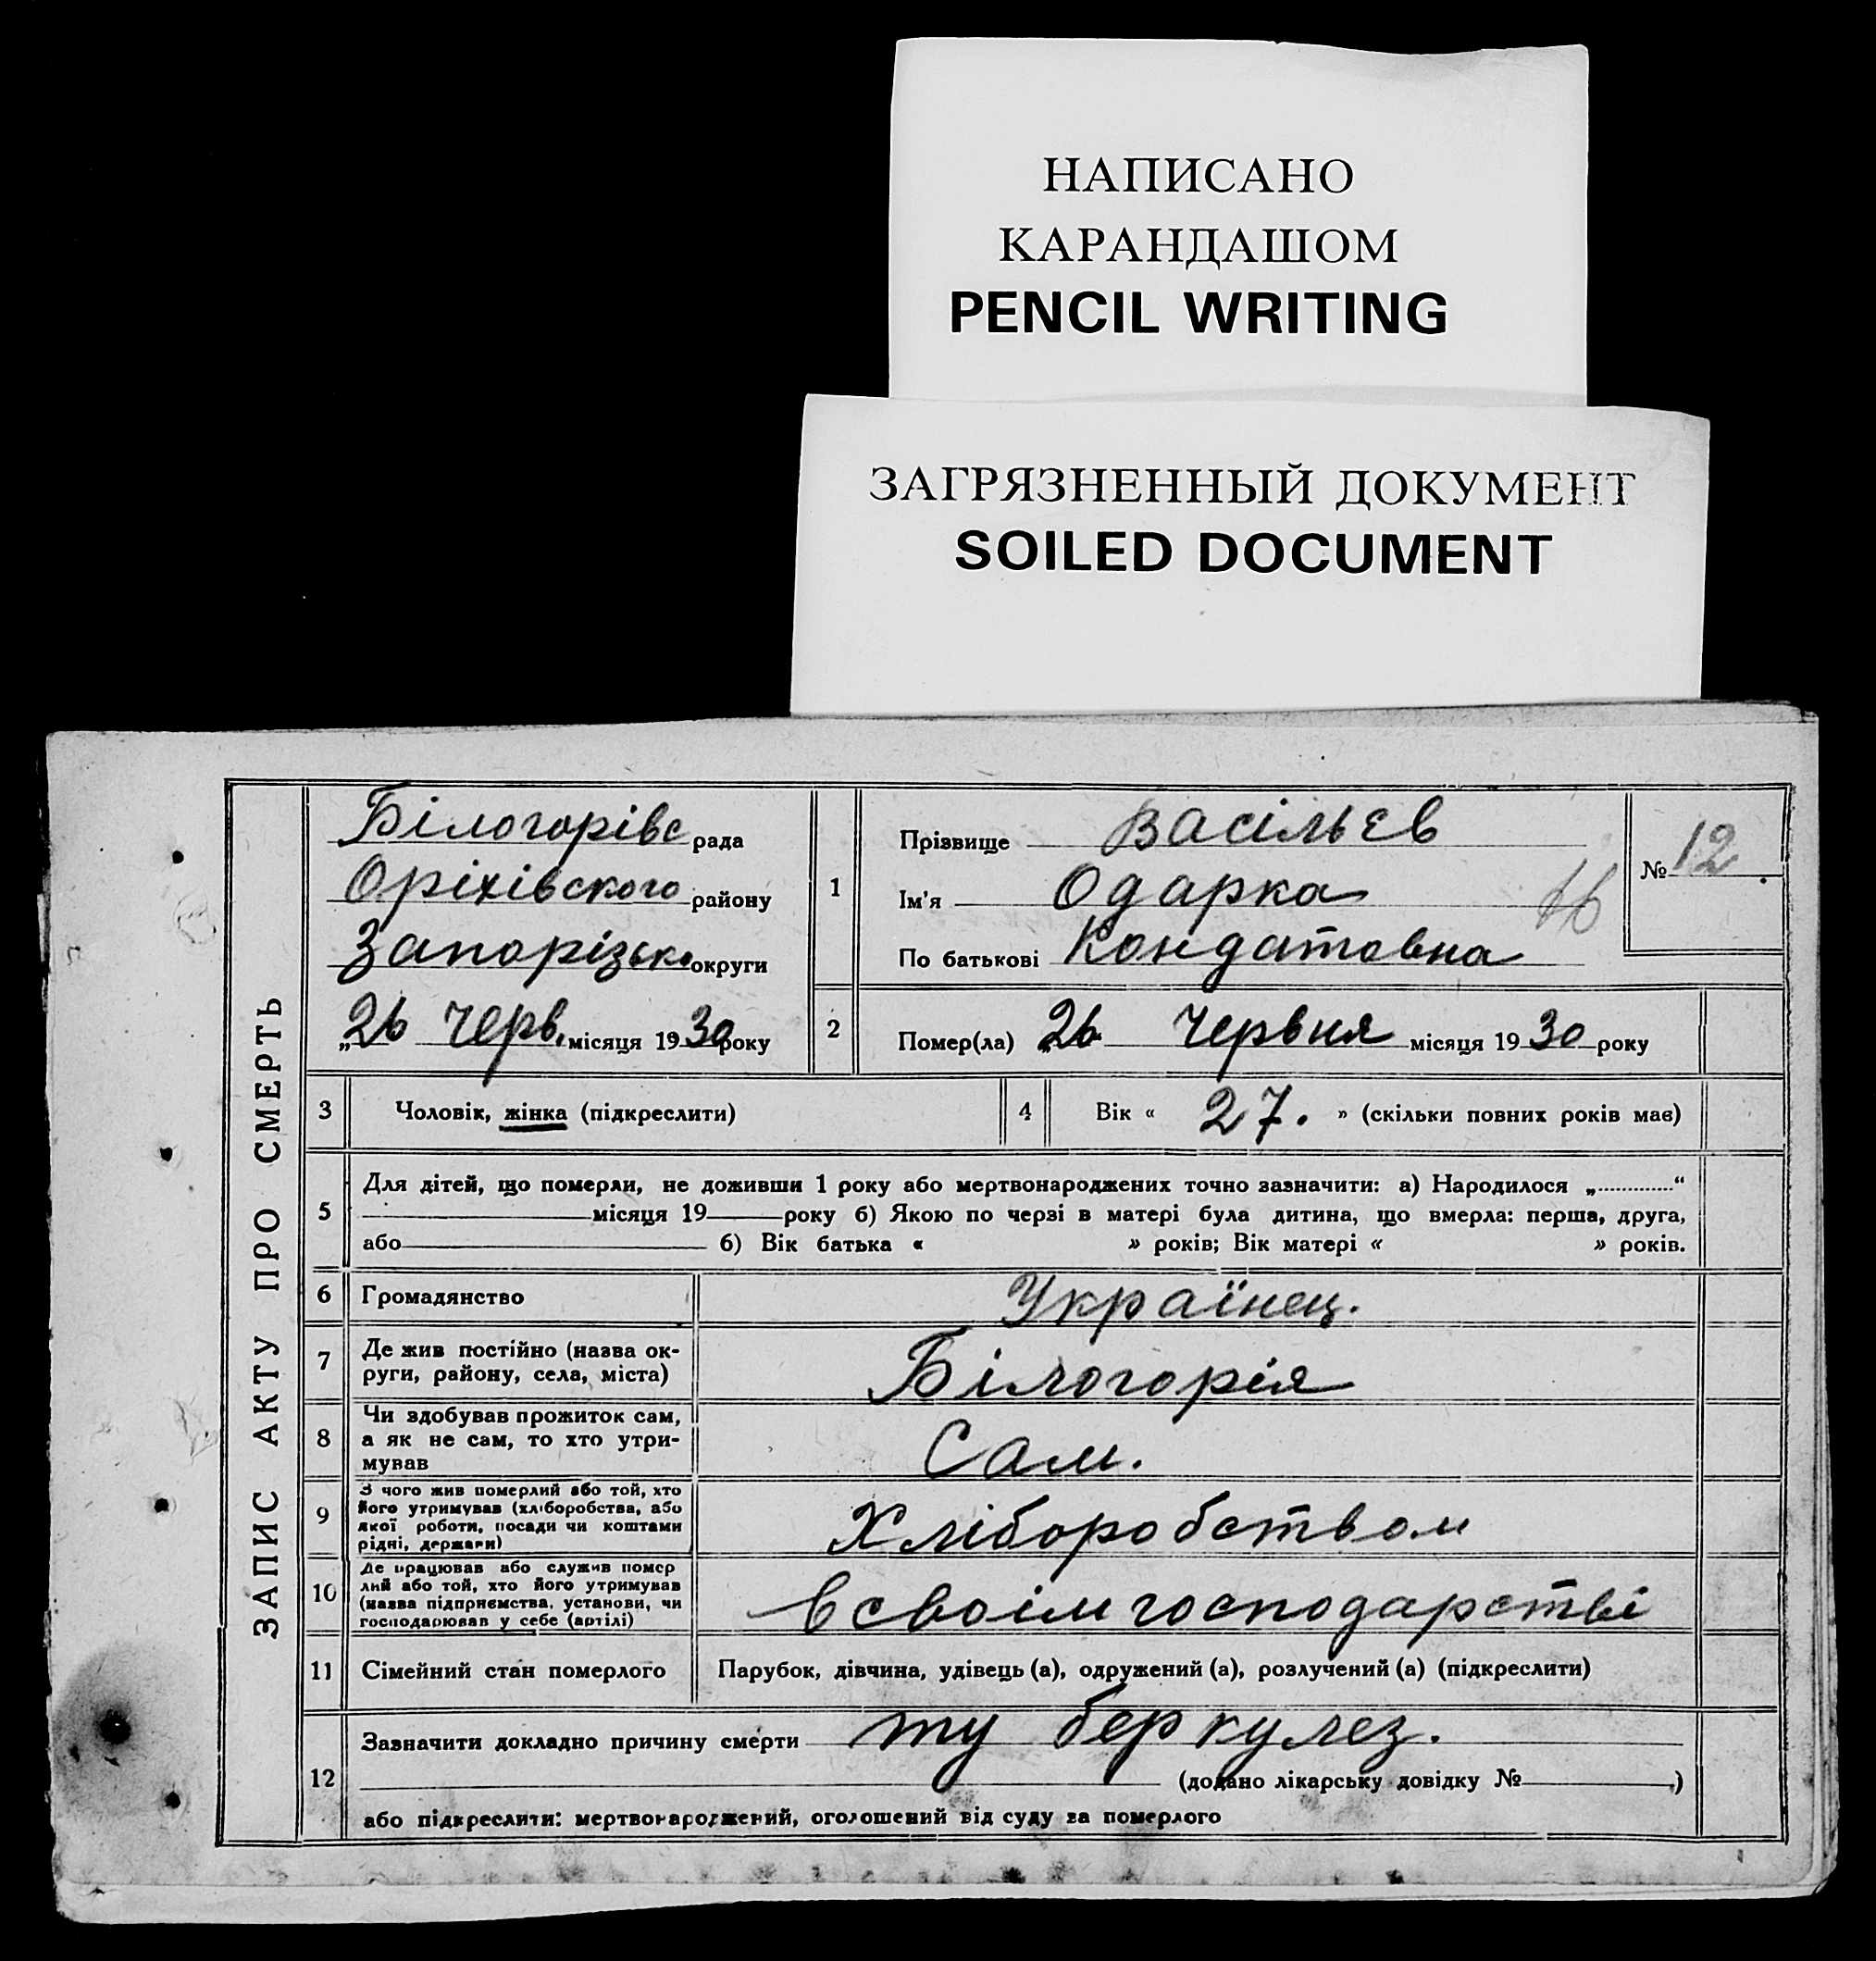 НАПИСАНО
КАРАНДАШОМ
PENCIL WRITING
ЗАГРЯЗНЕННЫЙ ДОКУМЕНТ
SOILED DOCUMENT
ЗАПИС АКТУ ПРО СМЕРТЬ
Білогорівс рада
Оріхівского району
Запорізько округи
„26 черв. місяця 1930 року
1
Прізвище Васільєв
Ім'я Одарка
По батькові Кондатовна
№ 12.
16
2 Помер(ла) 26 червня місяця 1930 року
3 Чоловік, жінка (підкреслити)
4 Вік « 27. » (скільки повних років має)
5
Для дітей, що померли, не доживши 1 року або мертвонароджених точно зазначити: а) Народилося „ “
місяця 19 року б) Якою по черзі в матері була дитина, що вмерла: перша, друга,
або б) Вік батька « » років; Вік матері « » років.
6 Громадянство Українец.
7 Де жив постійно (назва ок-
руги, району, села, міста)
Білогорія
8 Чи здобував прожиток сам,
а як не сам, то хто утри-
мував
Сам.
9 З чого жив померлий або той, хто
його утримував (хліборобства, або
якої роботи, посади чи коштами
рідні, держави)
Хліборобством
10 Де працював або служив помер
лий або той, хто його утримував
(назва підприємства, установи, чи
господарював у себе (артілі)
В своім господарстві
11 Сімейний стан померлого Парубок, дівчина, удівець (а), одружений (а), розлучений (а) (підкреслити)
12 Зазначити докладно причину смерти туберкулез.
(додано лікарську довідку № )
або підкреслити: мертвонароджений, оголошений від суду за померлого